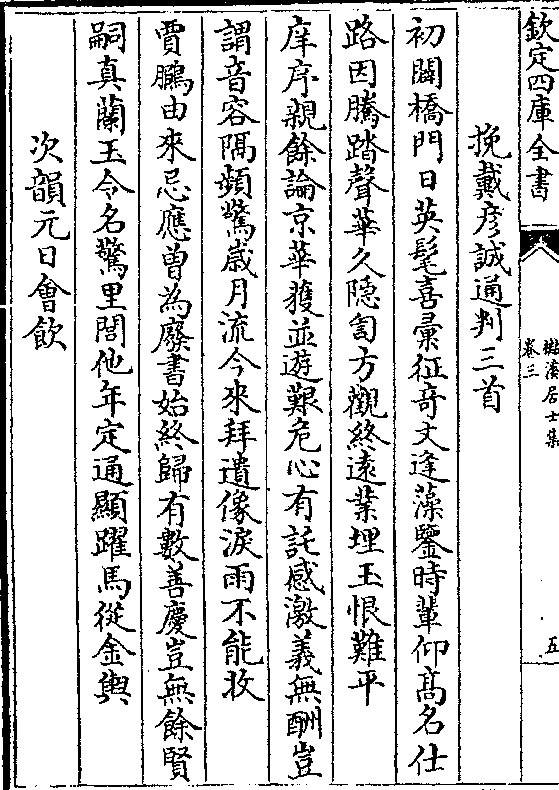 欽定四庫全書
樵溪居士集
卷三
五
挽戴彦誠通判三首
初闢橋門日英髦喜彚征奇文逢藻鑒時輩仰髙名仕
路因騰踏聲華久隐訇方觀終逺業埋玉恨難平
庠序親餘論京華獲並遊艱危心有託感激義無酬豈
謂音容隔頻驚歳月流今來拜遺像淚雨不能收
賈鵩由來忌應曽為廢書始終歸有數善慶豈無餘賢
嗣真蘭玉令名驚里閭他年定通顯躍馬從金輿
次韻元日會飲